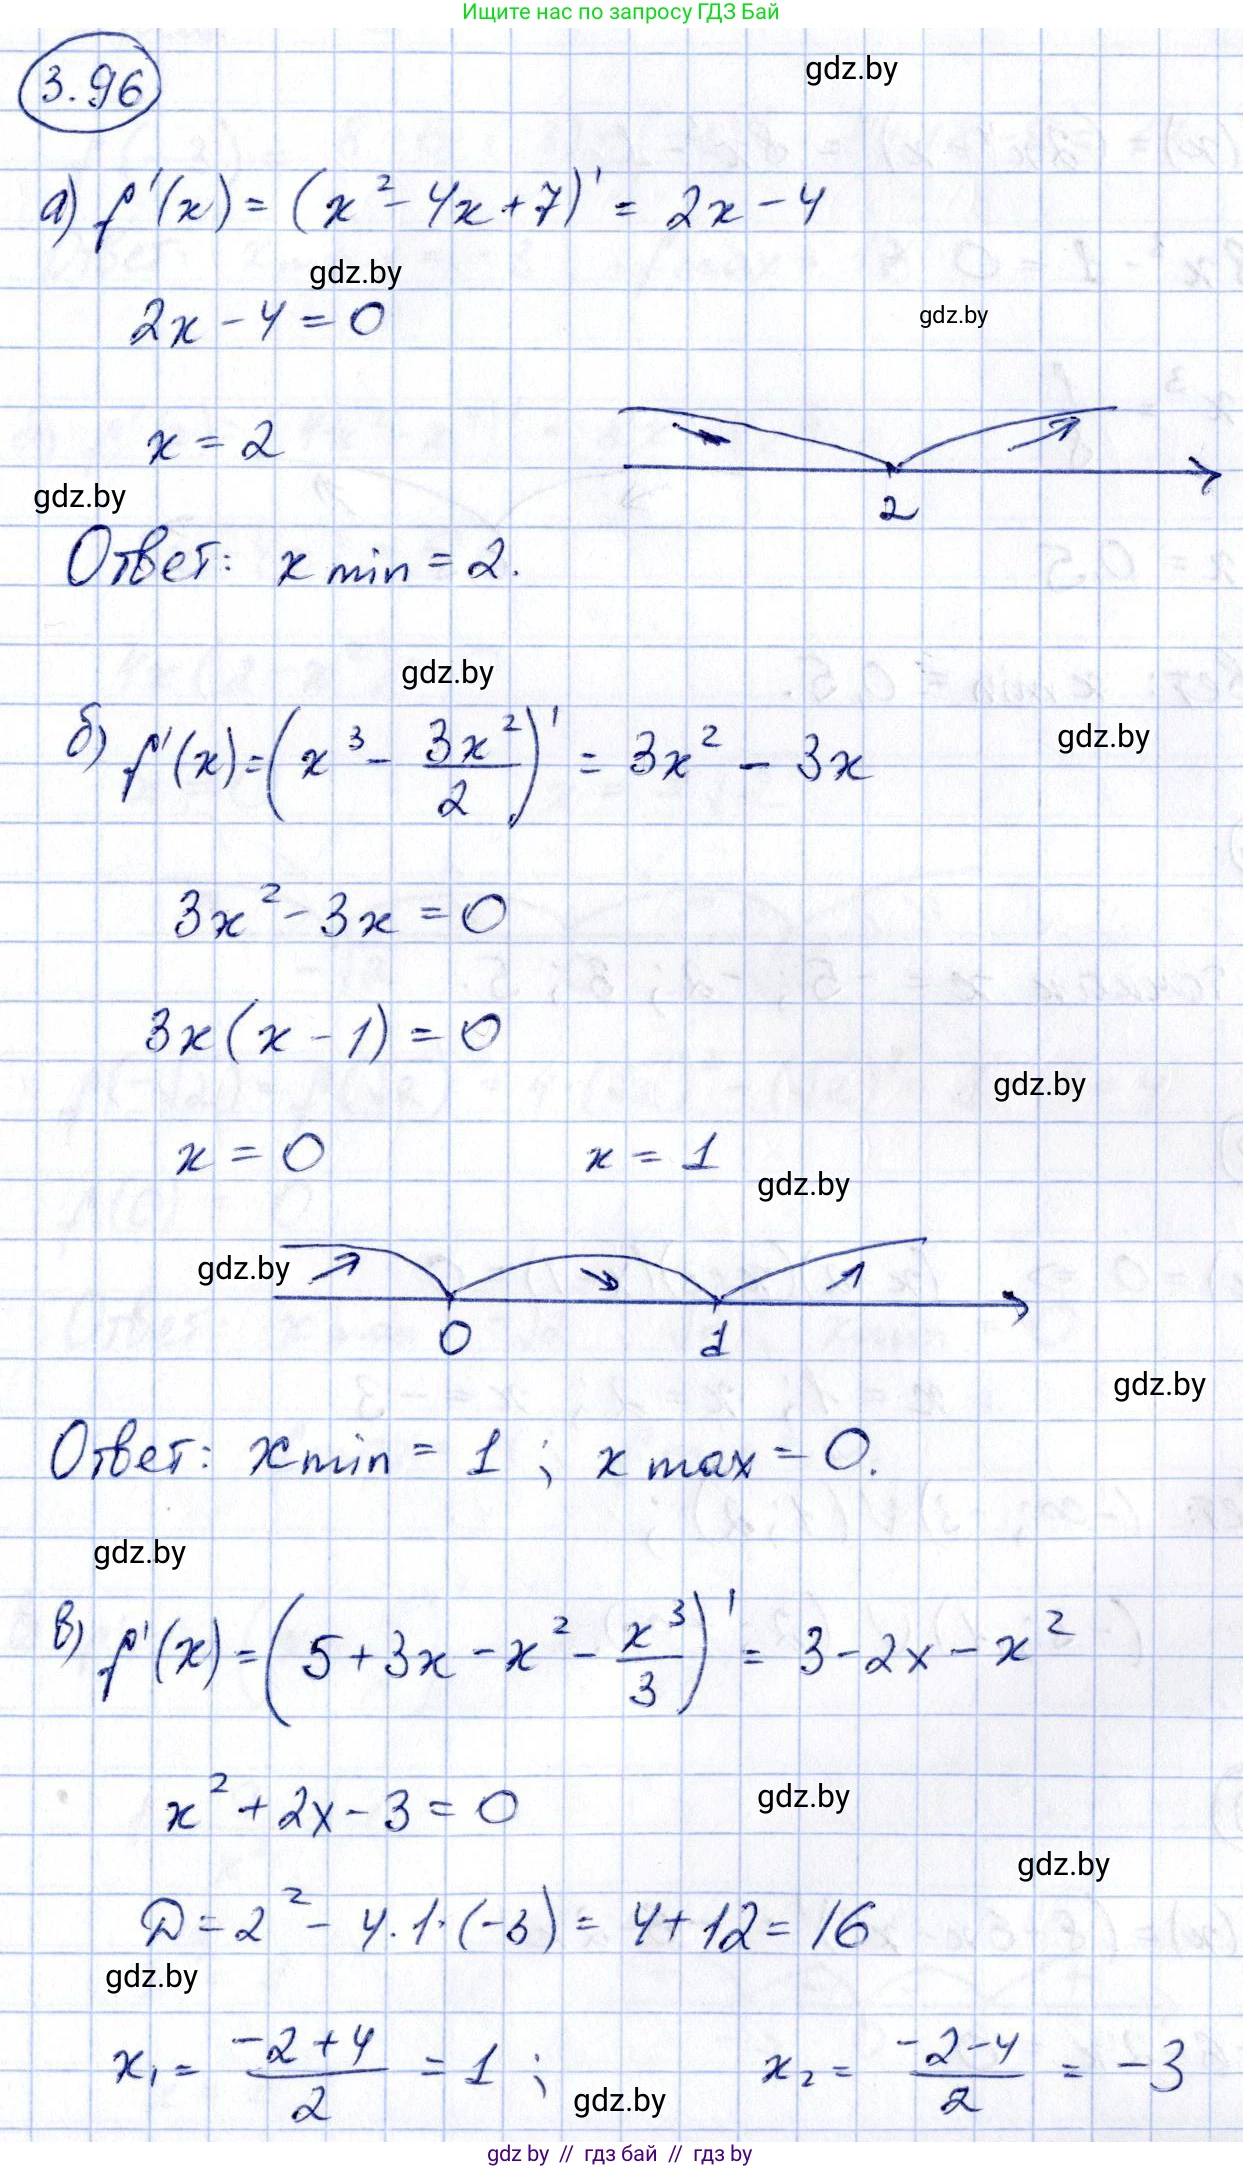 Ищите нас по запросу ГДЗ Бай
3.96
gdz.by
а) f'(x) = (x² - 4x + 7)' = 2x - 4
gdz.by
2x - 4 = 0
gdz.by
x = 2
2
gdz.by
Ответ: x min = 2.
gdz.by
б) f'(x) = (x³ - 3x²/2)' = 3x² - 3x
gdz.by
3x² - 3x = 0
3x(x - 1) = 0
gdz.by
x = 0 x = 1
gdz.by
gdz.by
0 1
gdz.by
Ответ: x min = 1 ; x max = 0.
gdz.by
в) f'(x) = (5 + 3x - x² - x³/3)' = 3 - 2x - x²
x² + 2x - 3 = 0
gdz.by
gdz.by
D = 2² - 4·1·(-3) = 4 + 12 = 16
gdz.by
x₁ = (-2+4)/2 = 1 ; x₂ = (-2-4)/2 = -3
gdz.by
gdz by // гдз бай // гдз by